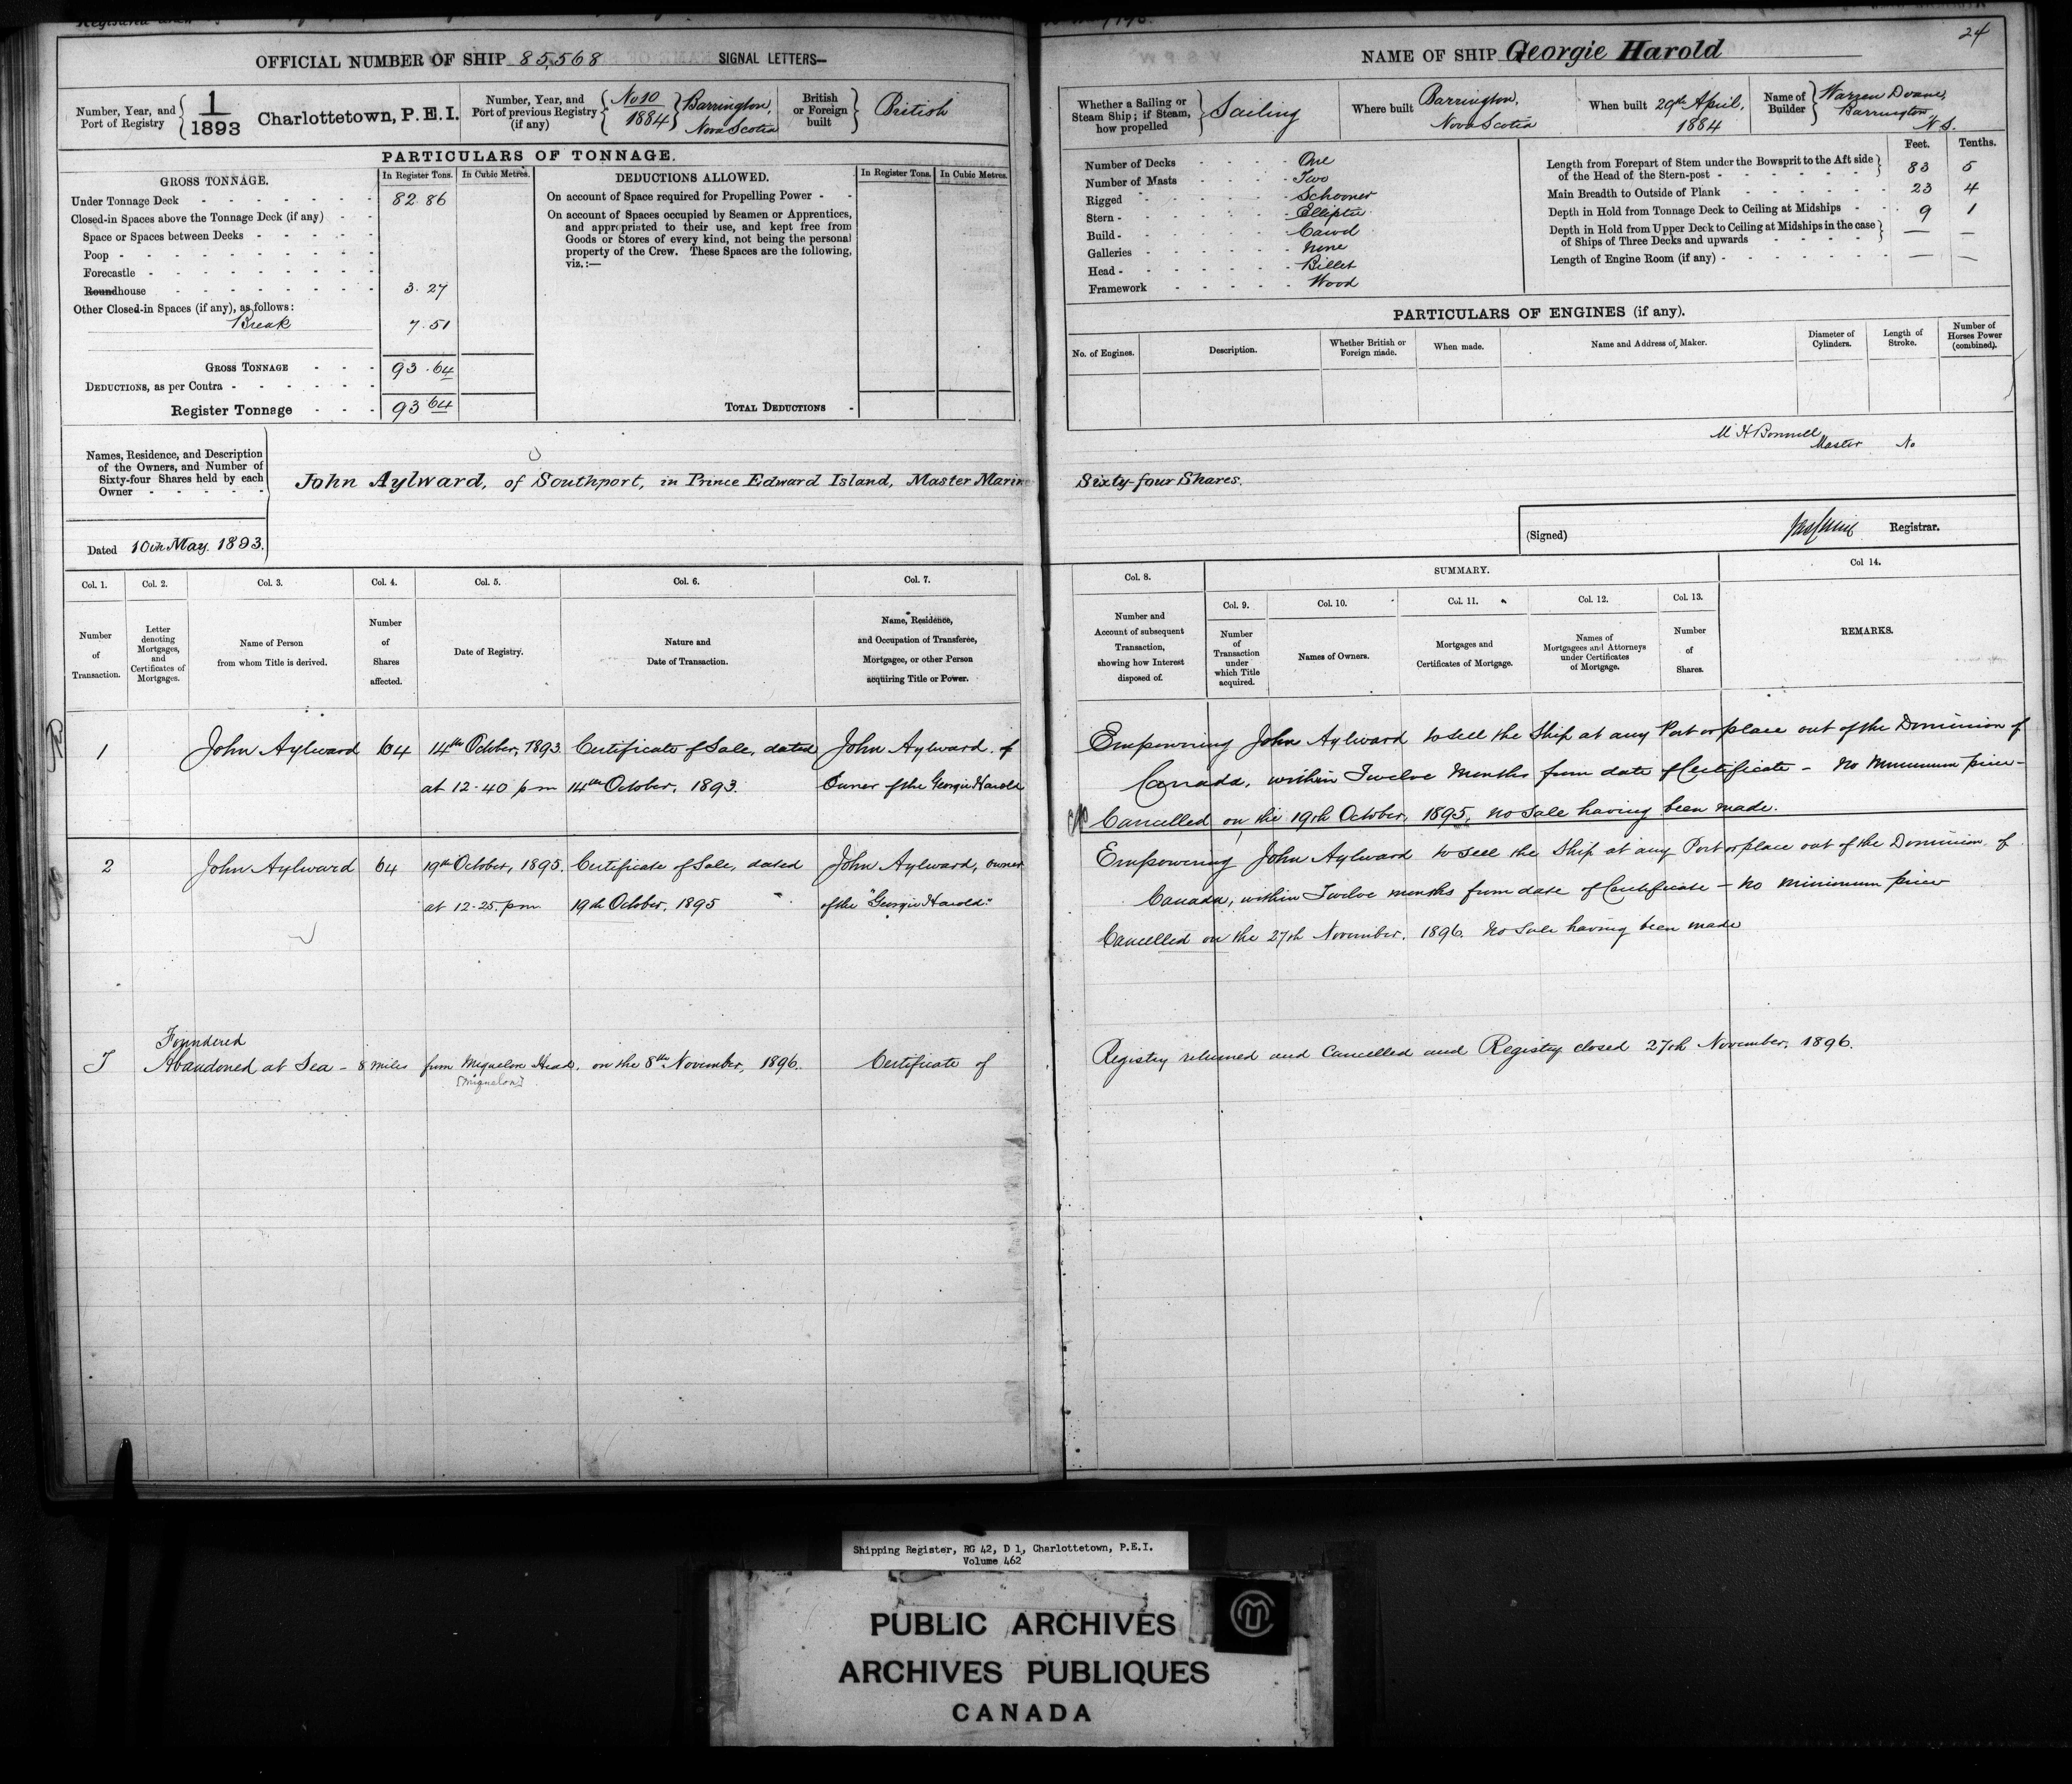 OFFICIAL NUMBER OF SHIP 85,568 SIGNAL LETTERS—
Number, Year, and Port of Registry { 1/1893 Charlottetown, P.E.I.
Number, Year, and Port of previous Registry (if any) { No 10/1884 } Barrington, Nova Scotia
British or Foreign built } British
PARTICULARS OF TONNAGE.
GROSS TONNAGE. In Register Tons. In Cubic Metres.
Under Tonnage Deck 82.86
Closed-in Spaces above the Tonnage Deck (if any)
Space or Spaces between Decks
Poop
Forecastle
Roundhouse 3.27
Other Closed-in Spaces (if any), as follows:
Break 7.51
GROSS TONNAGE 93.64
DEDUCTIONS, as per Contra
Register Tonnage 93 64
DEDUCTIONS ALLOWED. In Register Tons. In Cubic Metres.
On account of Space required for Propelling Power
On account of Spaces occupied by Seamen or Apprentices,
and appropriated to their use, and kept free from
Goods or Stores of every kind, not being the personal
property of the Crew. These Spaces are the following,
viz.:—
TOTAL DEDUCTIONS
Names, Residence, and Description
of the Owners, and Number of
Sixty-four Shares held by each
Owner
John Aylward, of Southport, in Prince Edward Island, Master Marin
Dated 10th May. 1893.
Col. 1. Col. 2. Col. 3. Col. 4. Col. 5. Col. 6. Col. 7.
Number of Transaction.
Letter denoting Mortgages, and Certificates of Mortgages.
Name of Person from whom Title is derived.
Number of Shares affected.
Date of Registry.
Nature and Date of Transaction.
Name, Residence, and Occupation of Transferee, Mortgagee, or other Person acquiring Title or Power.
1 John Aylward 64 14th October, 1893 Certificate of Sale, dated John Aylward. of
at 12.40 pm 14th October, 1893. Owner of the Georgie Harold
2 John Aylward 64 19th October, 1895. Certificate of Sale, dated John Aylward, owner
at 12.25. pm 19th October, 1895 of the "Georgie Harold."
Foundered
Abandoned at Sea – 8 miles from Miquelon Head, on the 8th November, 1896. Certificate of
[Miquelon]
24
NAME OF SHIP Georgie Harold
Whether a Sailing or Steam Ship; if Steam, how propelled } Sailing
Where built Barrington, Nova Scotia
When built 29th April, 1884
Name of Builder { Warren Doane, Barrington, N.S.
Number of Decks One
Number of Masts Two
Rigged Schooner
Stern Elliptic
Build Carvel
Galleries None
Head Billet
Framework Wood
Feet. Tenths.
Length from Forepart of Stem under the Bowsprit to the Aft side of the Head of the Stern-post 83 5
Main Breadth to Outside of Plank 23 4
Depth in Hold from Tonnage Deck to Ceiling at Midships 9 1
Depth in Hold from Upper Deck to Ceiling at Midships in the case of Ships of Three Decks and upwards — —
Length of Engine Room (if any) — —
PARTICULARS OF ENGINES (if any).
No. of Engines. Description. Whether British or Foreign made. When made. Name and Address of Maker. Diameter of Cylinders. Length of Stroke. Number of Horses Power (combined).
Master No
Sixty-four Shares.
(Signed) Registrar.
Col. 8. SUMMARY. Col 14.
Col. 9. Col. 10. Col. 11. Col. 12. Col. 13.
Number and Account of subsequent Transaction, showing how Interest disposed of.
Number of Transaction under which Title acquired.
Names of Owners.
Mortgages and Certificates of Mortgage.
Names of Mortgagees and Attorneys under Certificates of Mortgage.
Number of Shares.
REMARKS.
Empowering John Aylward to sell the Ship at any Port or place out of the Dominion of
Canada, within Twelve Months from date of Certificate – No Minimum price –
Cancelled on the 19th October, 1895, no Sale having been made.
Empowering John Aylward to sell the Ship at any Port or place out of the Dominion of
Canada, within Twelve months from date of Certificate – No minimum price
Cancelled on the 27th November, 1896. No Sale having been made
Registry returned and Cancelled and Registry closed 27th November, 1896.
Shipping Register, RG 42, D 1, Charlottetown, P.E.I.
Volume 462
PUBLIC ARCHIVES
ARCHIVES PUBLIQUES
CANADA